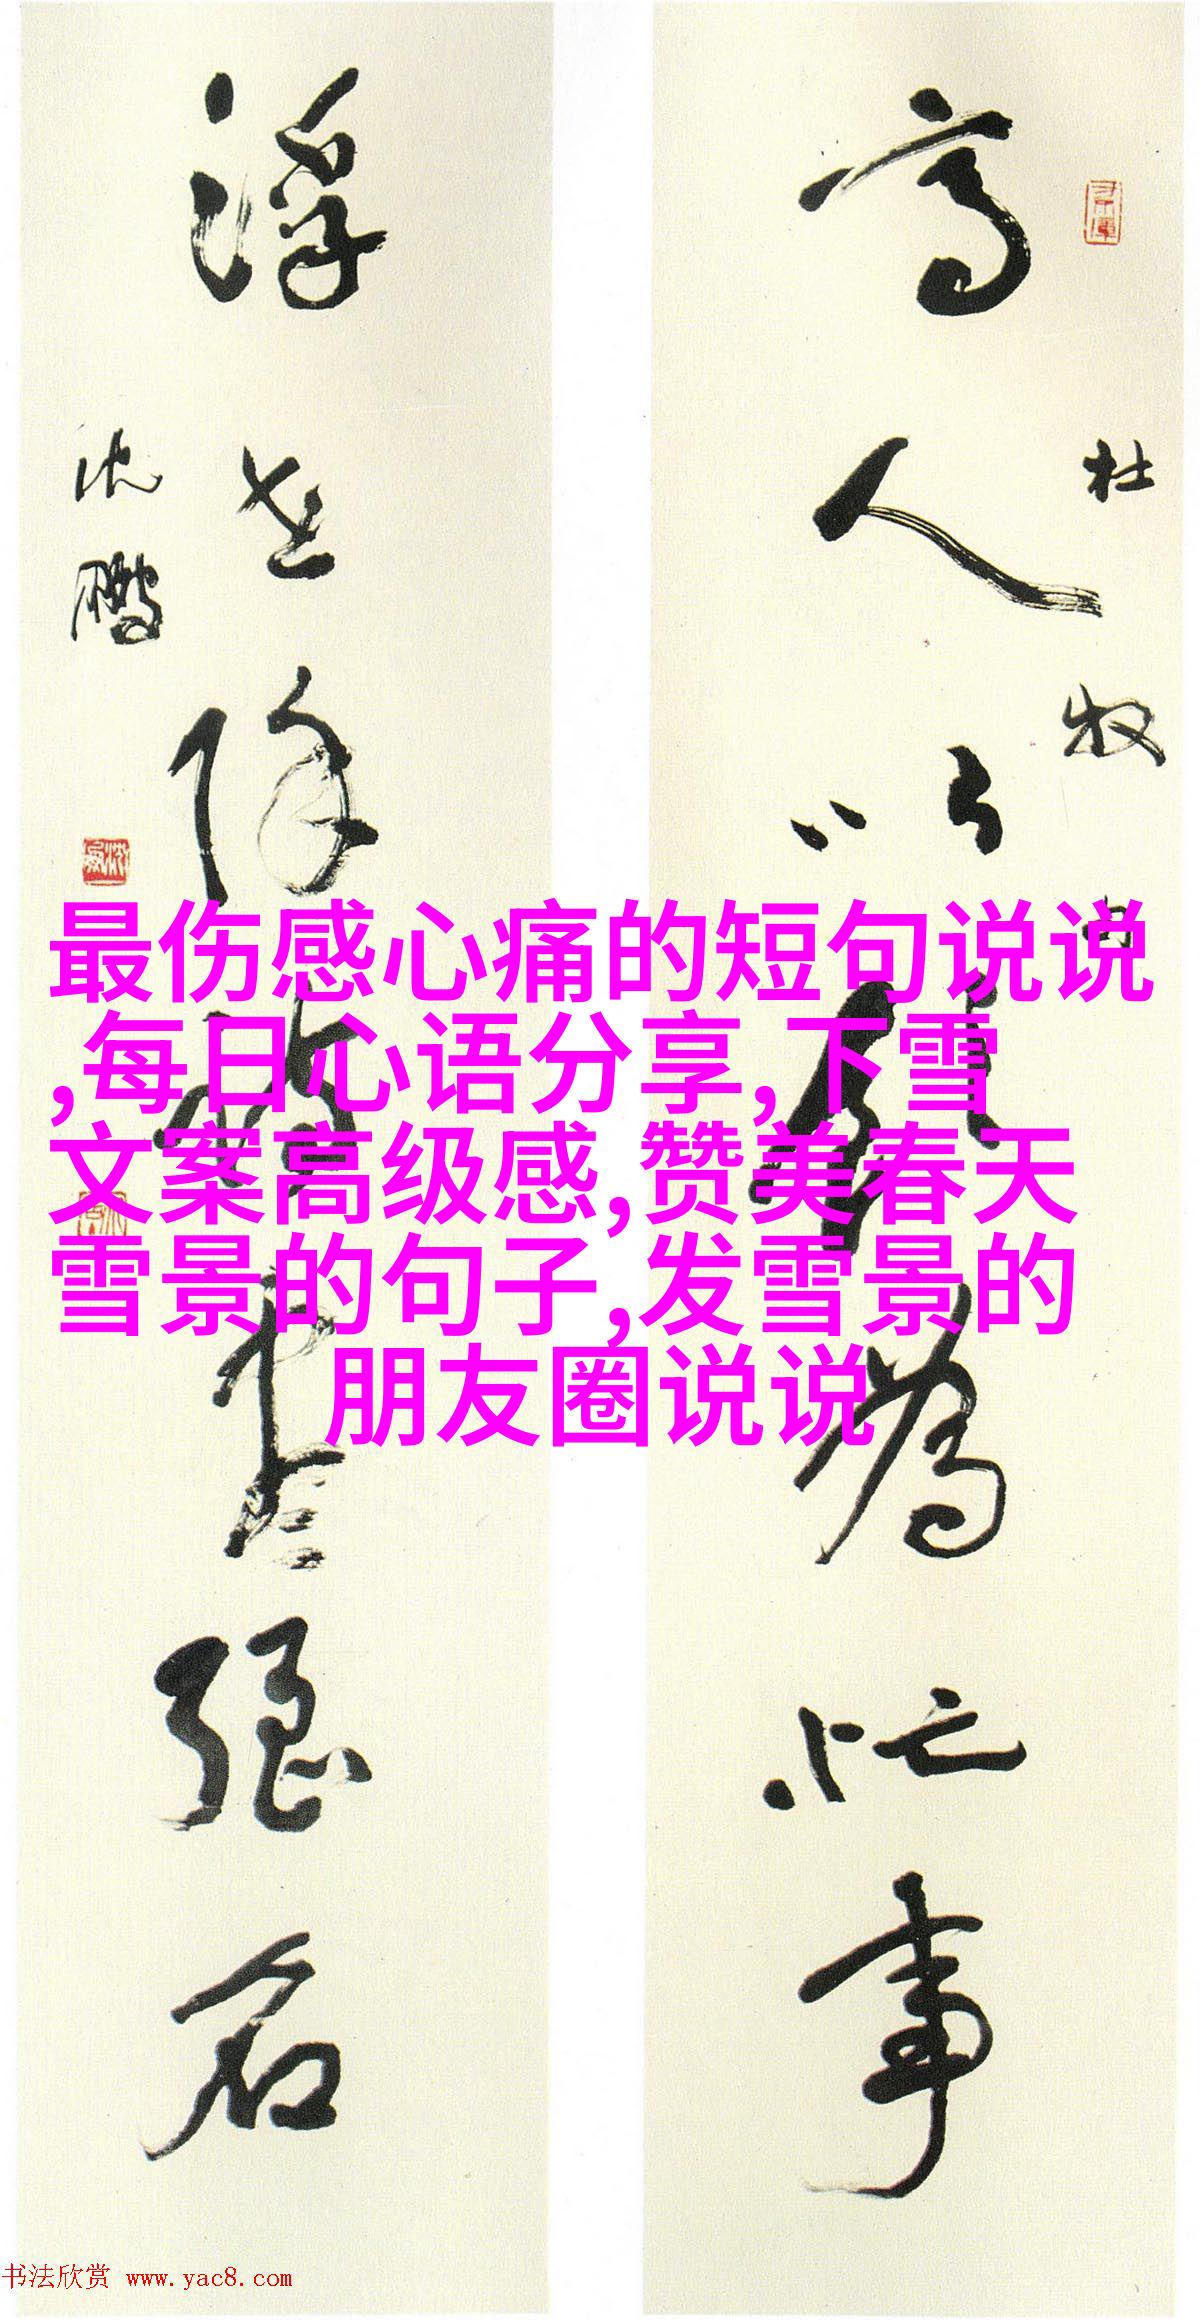 高人以為忙事
杜牧句
浮世除盡强名
沈鹏
最伤感心痛的短句说说
,每日心语分享,下雪
文案高级感,赞美春天
雪景的句子,发雪景的
朋友圈说说
书法欣赏 www.yac8.com